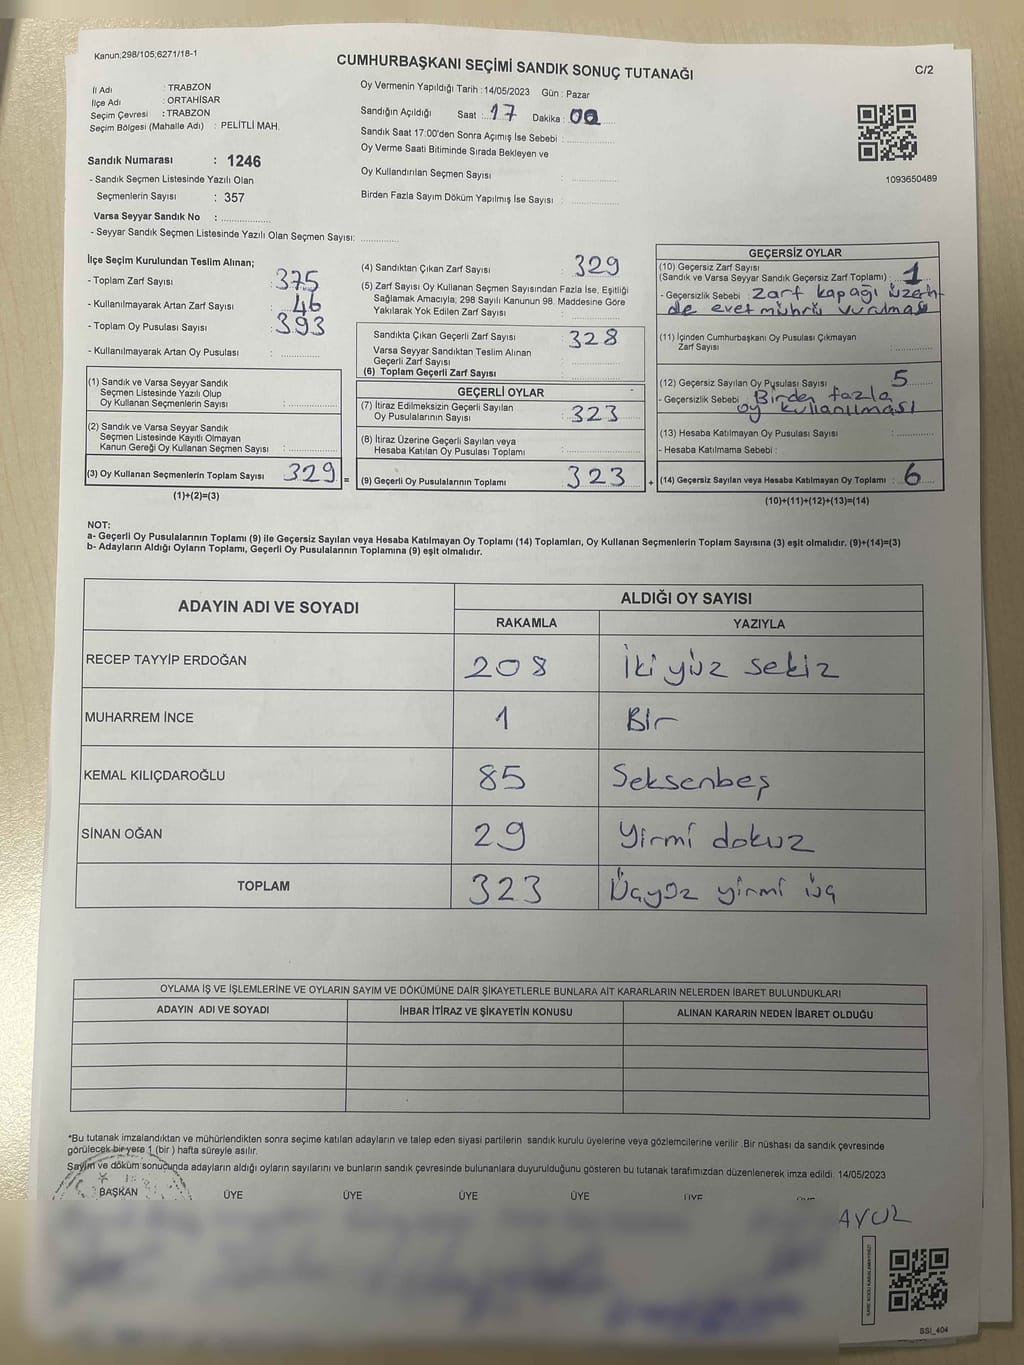 Kanun;298/105,6271/18-1
CUMHURBAŞKANI SEÇİMİ SANDIK SONUÇ TUTANAĞI
C/2
İl Adı : TRABZON
İlçe Adı : ORTAHİSAR
Seçim Çevresi : TRABZON
Seçim Bölgesi (Mahalle Adı) : PELİTLİ MAH.
Oy Vermenin Yapıldığı Tarih :14/05/2023 Gün : Pazar
Sandığın Açıldığı Saat :17 Dakika : 00
Sandık Saat 17:00'den Sonra Açımış İse Sebebi :
Oy Verme Saati Bitiminde Sırada Bekleyen ve
Oy Kullandırılan Seçmen Sayısı :
Birden Fazla Sayım Döküm Yapılmış İse Sayısı :
1093650489
Sandık Numarası : 1246
- Sandık Seçmen Listesinde Yazılı Olan
Seçmenlerin Sayısı : 357
Varsa Seyyar Sandık No :
- Seyyar Sandık Seçmen Listesinde Yazılı Olan Seçmen Sayısı:
İlçe Seçim Kurulundan Teslim Alınan;
- Toplam Zarf Sayısı : 375
- Kullanılmayarak Artan Zarf Sayısı : 46
- Toplam Oy Pusulası Sayısı : 393
- Kullanılmayarak Artan Oy Pusulası :
(1) Sandık ve Varsa Seyyar Sandık
Seçmen Listesinde Yazılı Olup
Oy Kullanan Seçmenlerin Sayısı :
(2) Sandık ve Varsa Seyyar Sandık
Seçmen Listesinde Kayıtlı Olmayan
Kanun Gereği Oy Kullanan Seçmen Sayısı :
(3) Oy Kullanan Seçmenlerin Toplam Sayısı : 329 =
(1)+(2)=(3)
(4) Sandıktan Çıkan Zarf Sayısı : 329
(5) Zarf Sayısı Oy Kullanan Seçmen Sayısından Fazla İse, Eşitliği
Sağlamak Amacıyla; 298 Sayılı Kanunun 98. Maddesine Göre
Yakılarak Yok Edilen Zarf Sayısı :
Sandıkta Çıkan Geçerli Zarf Sayısı : 328
Varsa Seyyar Sandıktan Teslim Alınan
Geçerli Zarf Sayısı :
(6) Toplam Geçerli Zarf Sayısı :
GEÇERLİ OYLAR
(7) İtiraz Edilmeksizin Geçerli Sayılan
Oy Pusulalarının Sayısı : 323
(8) İtiraz Üzerine Geçerli Sayılan veya
Hesaba Katılan Oy Pusulası Toplamı :
(9) Geçerli Oy Pusulalarının Toplamı : 323 +
GEÇERSİZ OYLAR
(10) Geçersiz Zarf Sayısı
(Sandık ve Varsa Seyyar Sandık Geçersiz Zarf Toplamı) : 1
- Geçersizlik Sebebi : Zarf kapağı üzerin-
de evet mührü vurulması
(11) İçinden Cumhurbaşkanı Oy Pusulası Çıkmayan
Zarf Sayısı :
(12) Geçersiz Sayılan Oy Pusulası Sayısı : 5
- Geçersizlik Sebebi : Birden fazla
oy kullanılması
(13) Hesaba Katılmayan Oy Pusulası Sayısı :
- Hesaba Katılmama Sebebi :
(14) Geçersiz Sayılan veya Hesaba Katılmayan Oy Toplamı : 6
(10)+(11)+(12)+(13)=(14)
NOT:
a- Geçerli Oy Pusulalarının Toplamı (9) ile Geçersiz Sayılan veya Hesaba Katılmayan Oy Toplamı (14) Toplamları, Oy Kullanan Seçmenlerin Toplam Sayısına (3) eşit olmalıdır. (9)+(14)=(3)
b- Adayların Aldığı Oyların Toplamı, Geçerli Oy Pusulalarının Toplamına (9) eşit olmalıdır.
ADAYIN ADI VE SOYADI
ALDIĞI OY SAYISI
RAKAMLA YAZIYLA
RECEP TAYYİP ERDOĞAN 208 İki yüz sekiz
MUHARREM İNCE 1 Bir
KEMAL KILIÇDAROĞLU 85 Seksenbeş
SİNAN OĞAN 29 Yirmi dokuz
TOPLAM 323 Üçyüz yirmi üç
OYLAMA İŞ VE İŞLEMLERİNE VE OYLARIN SAYIM VE DÖKÜMÜNE DAİR ŞİKAYETLERLE BUNLARA AİT KARARLARIN NELERDEN İBARET BULUNDUKLARI
ADAYIN ADI VE SOYADI İHBAR İTİRAZ VE ŞİKAYETİN KONUSU ALINAN KARARIN NEDEN İBARET OLDUĞU
*Bu tutanak imzalandıktan ve mühürlendikten sonra seçime katılan adayların ve talep eden siyasi partilerin sandık kurulu üyelerine veya gözlemcilerine verilir .Bir nüshası da sandık çevresinde
görülecek bir yere 1 (bir ) hafta süreyle asılır.
Sayım ve döküm sonucunda adayların aldığı oyların sayılarını ve bunların sandık çevresinde bulunanlara duyurulduğunu gösteren bu tutanak tarafımızdan düzenlenerek imza edildi. 14/05/2023
BAŞKAN ÜYE ÜYE ÜYE ÜYE ÜYE
SSI_404